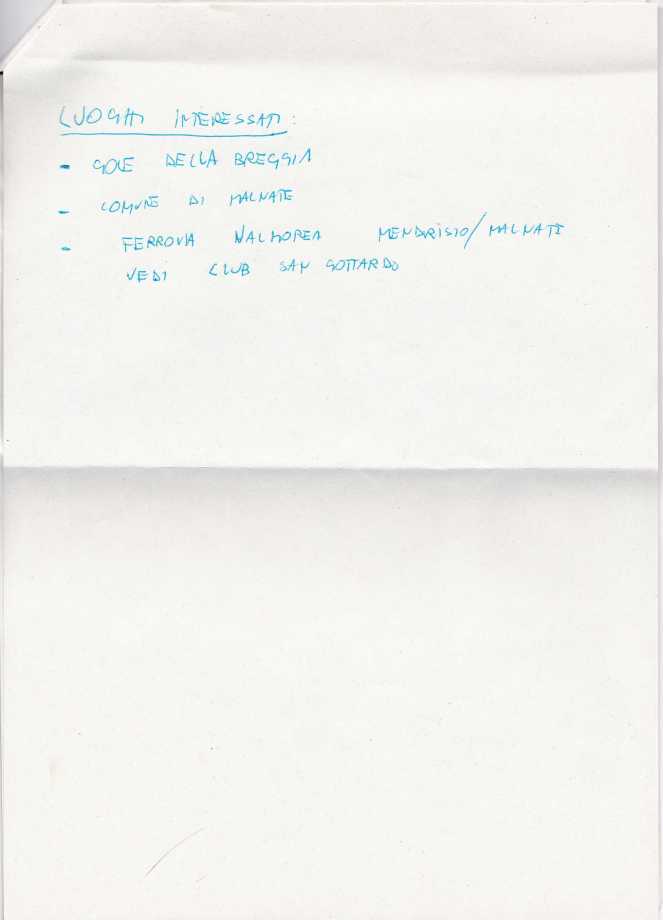 LUOGHI INTERESSATI:
- GOLE DELLA BREGGIA
- COMUNE DI MALNATE
- FERROVIA VALMOREA MENDRISIO/MALNATE
VEDI CLUB SAN GOTTARDO